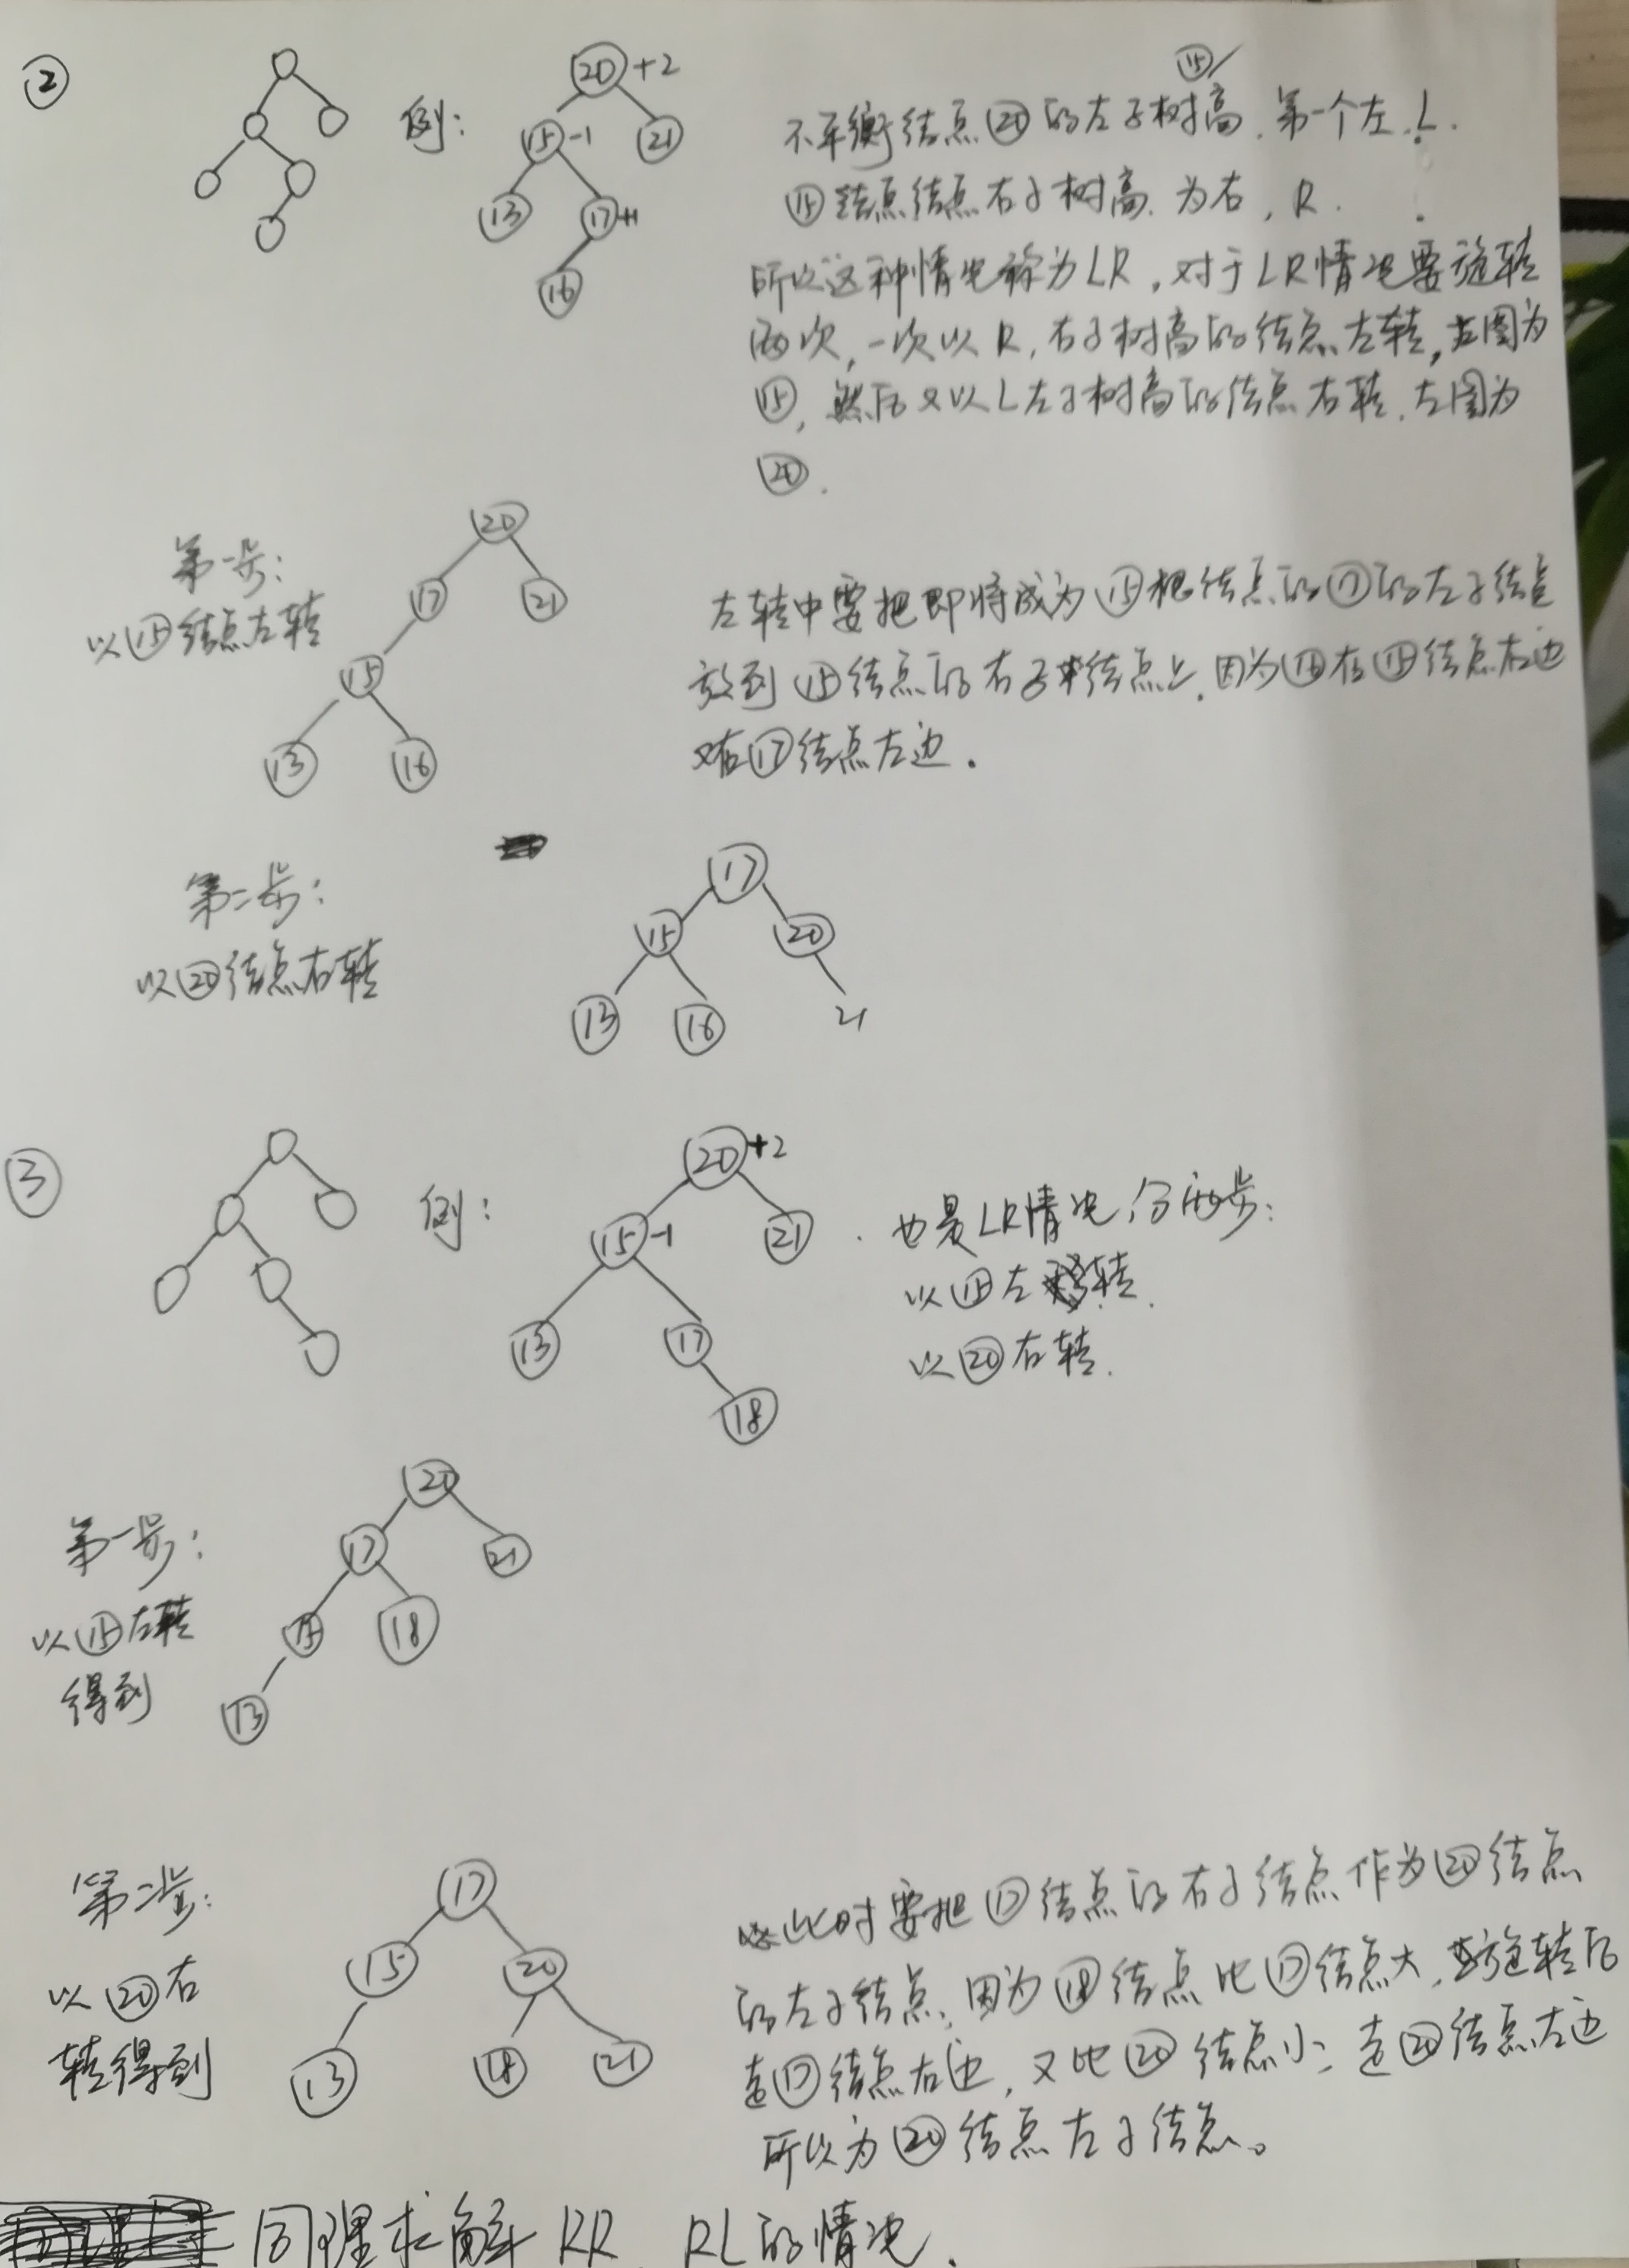 ②
例:
20 +2
15 -1
21
13
17 +1
16
⑮
不平衡结点⑳的左子树高,第一个左,L.
⑮结点结点右子树高,为右,R.
所以这种情况称为LR,对于LR情况要旋转
两次,一次以R,右子树高的结点左转,左图为
⑮,然后又以L左子树高的结点右转,左图为
⑳.
第一步:
以⑮结点左转
20
17
21
15
13
16
左转中要把即将成为⑮根结点的⑰的左子结点
放到⑮结点的右子结点上,因为⑯在⑮结点右边
又在⑰结点左边.
第二步:
以⑳结点右转
17
15
20
13
16
21
③
例:
20 +2
15 -1
21
13
17
18
也是LR情况,分两步:
以⑮左转.
以⑳右转.
第一步:
以⑮左转
得到
20
17
21
15
18
13
第二步:
以⑳右
转得到
17
15
20
13
18
21
此时要把⑰结点的右子结点作为⑳结点
的左子结点,因为⑱结点比⑰结点大,旋转后
在⑰结点右边,又比⑳结点小,在⑳结点左边
所以为⑳结点左子结点。
同理求解RR,RL的情况.